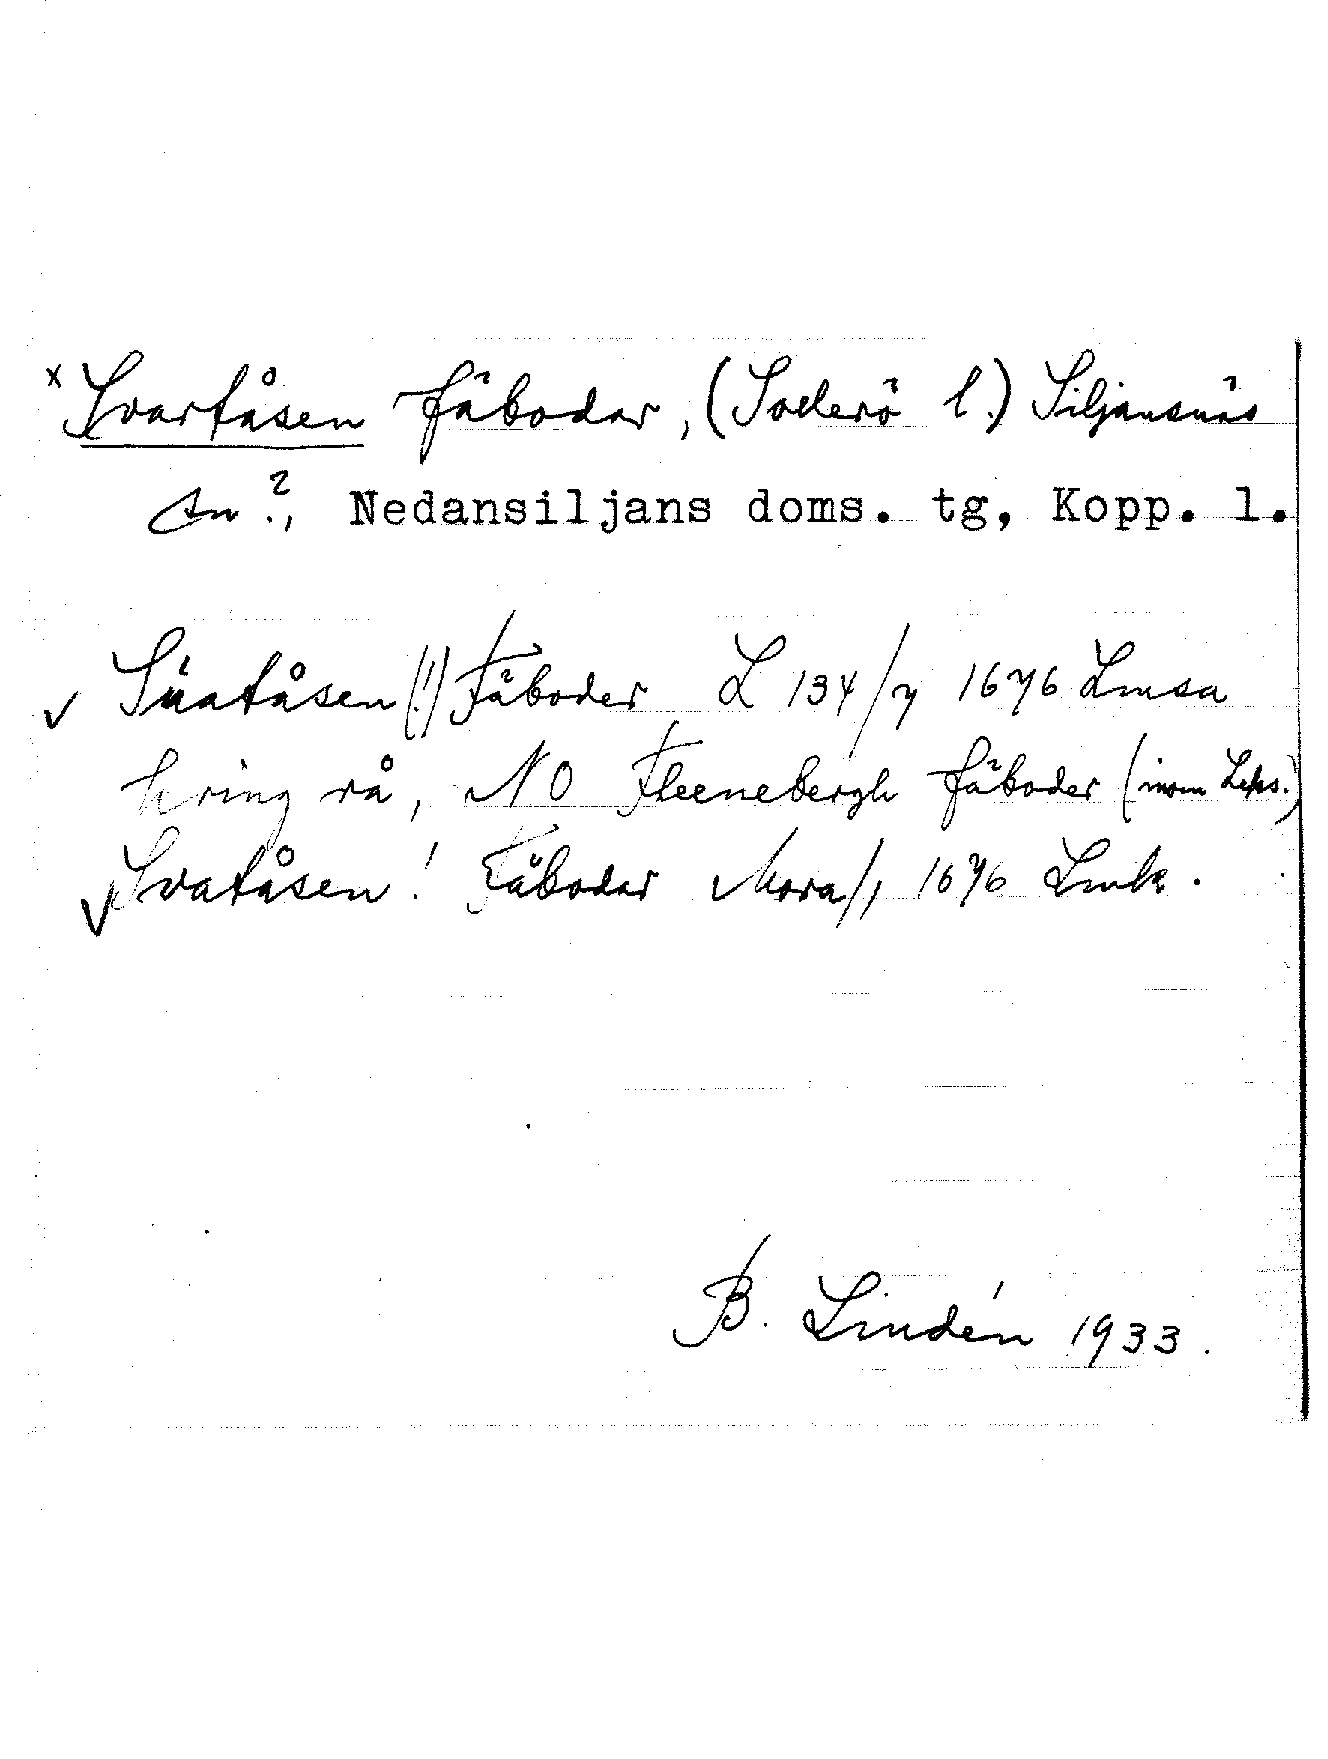 x Svartåsen fäbodar, (Sollerö l.) Siljansnäs
sn?, Nedansiljans doms. tg, Kopp. l.
Suatåsen (!) Fäboder L 134/7 1676 Lmsa
kring rå, NO Fleenebergh fäboder (inom Leks.)
Svatåsen! Fäbodar Mora/1 1676 Lmk.
B. Lindén 1933.